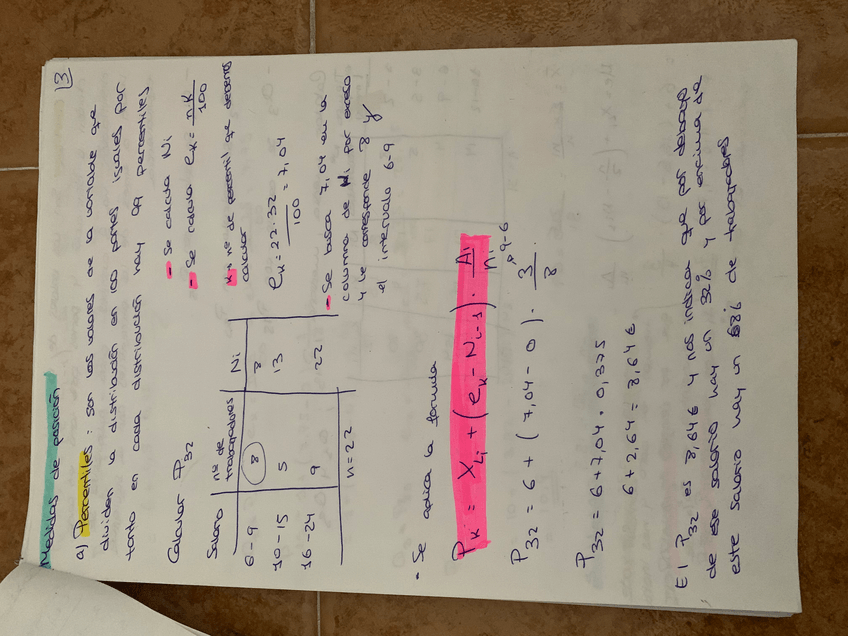 3
Medidas de posición
a) Percentiles : son los valores de la variable que
dividen la distribución en 100 partes iguales por
tanto en cada distribución hay 99 percentiles
Calcular P32
Salario nº de trabajadores Ni
6-9 8 8
10-15 5 13
16-24 9 22
n=22
- Se calcula Ni
- Se calcula eK = n·K / 100
K= nº de percentil que debemos
calcular
eK = 22·32 / 100 = 7,04
- Se busca 7,04 en la
columna de Ni por exceso
y le corresponde 8 y
el intervalo 6-9
- Se aplica la formula
PK = XLi + (eK - Ni-1) · Ai / ni
P32 = 6 + (7,04 - 0) · 3 / 8
9-6
P32 = 6 + 7,04 · 0,375
6 + 2,64 = 8,64€
El P32 es 8,64€ y nos indica que por debajo
de ese salario hay un 32% y por encima de
este salario hay un 68% de trabajadores